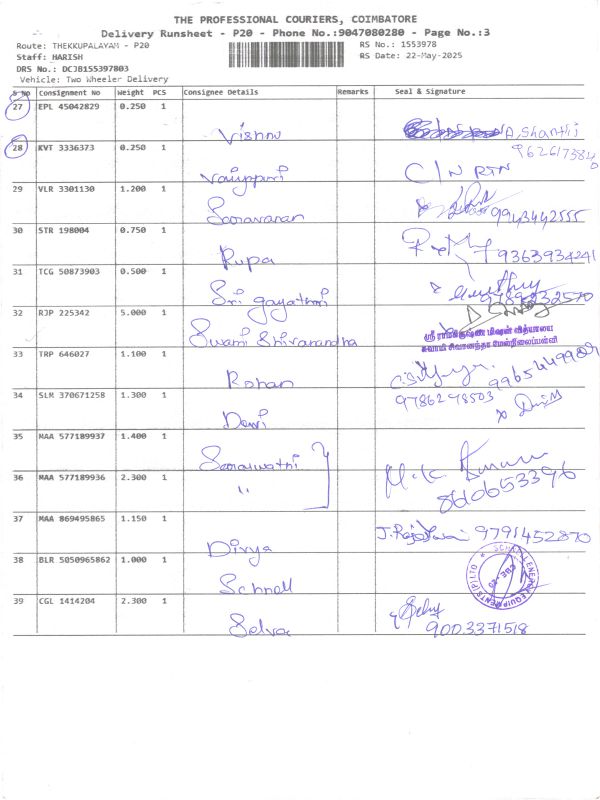 THE PROFESSIONAL COURIERS, COIMBATORE
Delivery Runsheet - P20 - Phone No.:9047080280 - Page No.:3
Route: THEKKUPALAYAM - P20
RS No.: 1553978
Staff: HARISH
RS Date: 22-May-2025
DRS No.: DCJB155397803
Vehicle: Two Wheeler Delivery
S No Consignment No Weight PCS Consignee Details Remarks Seal & Signature
27 EPL 45042829 0.250 1 Vishnu A. Shanthi
28 KVT 3336373 0.250 1 Vaiyppuri C/N RTN
29 VLR 3301130 1.200 1 Saravanan 9943442555
30 STR 198004 0.750 1 Rupa 9363934241
31 TCG 50873903 0.500 1 Sri gayathri
32 RJP 225342 5.000 1 Swami Shivanandha
ஸ்ரீ ராமகிருஷ்ண மிஷன் வித்யாலய
சுவாமி சிவானந்தா மேல்நிலைப்பள்ளி
33 TRP 646027 1.100 1 Rohan
34 SLM 370671258 1.300 1 Devi 9786298503
35 MAA 577189937 1.400 1 Saraswathi
36 MAA 577189936 2.300 1 " M.K. Kumar
8610653396
37 MAA 869495865 1.150 1 Divya 9791452870
38 BLR 5050965862 1.000 1 Schnell
39 CGL 1414204 2.300 1 Selva
9003371518